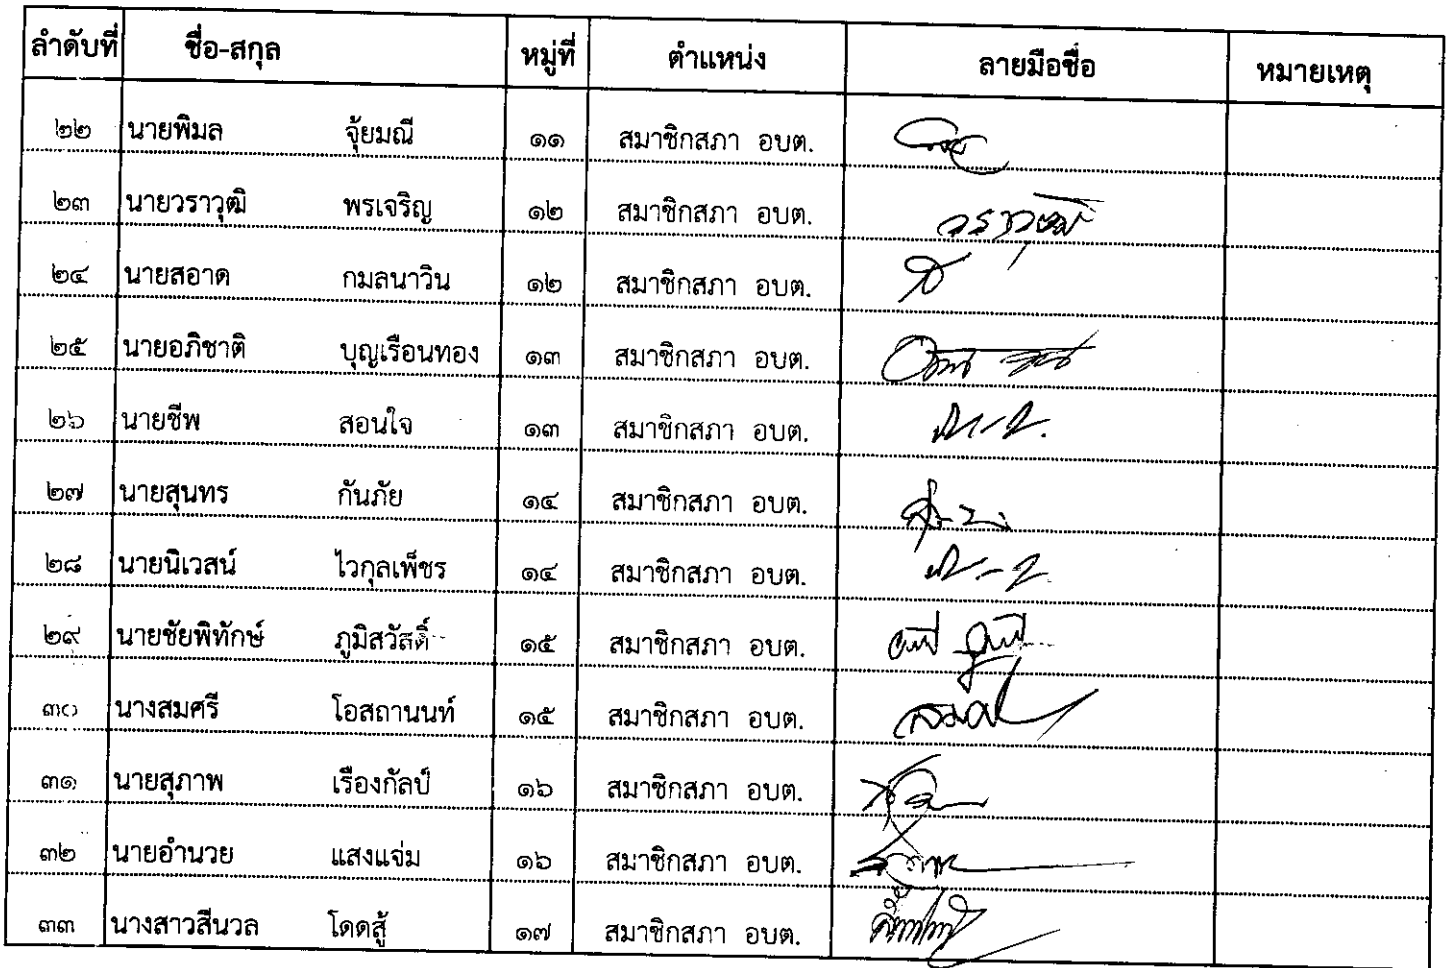 ลำดับที่ ชื่อ-สกุล หมู่ที่ ตำแหน่ง ลายมือชื่อ หมายเหตุ
๒๒ นายพิมล จุ้ยมณี ๑๑ สมาชิกสภา อบต.
๒๓ นายวราวุฒิ พรเจริญ ๑๒ สมาชิกสภา อบต. วราวุฒิ
๒๔ นายสอาด กมลนาวิน ๑๒ สมาชิกสภา อบต.
๒๕ นายอภิชาติ บุญเรือนทอง ๑๓ สมาชิกสภา อบต.
๒๖ นายชีพ สอนใจ ๑๓ สมาชิกสภา อบต.
๒๗ นายสุนทร กันภัย ๑๔ สมาชิกสภา อบต.
๒๘ นายนิเวสน์ ไวกุลเพ็ชร ๑๔ สมาชิกสภา อบต.
๒๙ นายชัยพิทักษ์ ภูมิสวัสดิ์ ๑๕ สมาชิกสภา อบต.
๓๐ นางสมศรี โอสถานนท์ ๑๕ สมาชิกสภา อบต.
๓๑ นายสุภาพ เรืองกัลป์ ๑๖ สมาชิกสภา อบต.
๓๒ นายอำนวย แสงแจ่ม ๑๖ สมาชิกสภา อบต.
๓๓ นางสาวสีนวล โดดสู้ ๑๗ สมาชิกสภา อบต.